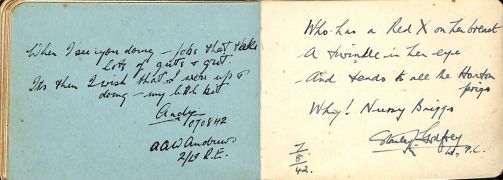 When I see you doing – jobs that take
lots of guts & grit
Its then I wish that I were up &
doing – my little bit
Andy
070842
A A W Andrews
2/Lt R.E.
Who has a Red X on her breast
A twinkle in her eye
And tends to all the
Why! Nursy Briggs
Stanley Godfrey
Lt,
7
8
42.